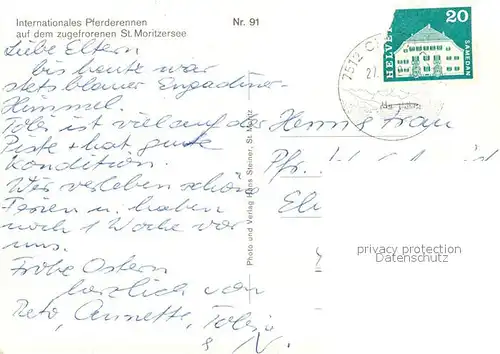 Internationales Pferderennen
auf dem zugefrorenen St. Moritzersee
Nr. 91
Liebe Eltern
bis heute war
stets blauer Engadiner-
Himmel.
Tobi ist viel auf der
Piste + hat gute
Kondition.
Wir verleben schöne
Ferien u. haben
noch 1 Woche vor
uns.
Frohe Ostern
herzlich von
Reto, Annette, Tobi
& N.
Photo und Verlag Hans Steiner, St. Moritz
7512
HELVETIA
20
SAMEDAN
Herrn + Frau
Pfr.
privacy protection
Datenschutz